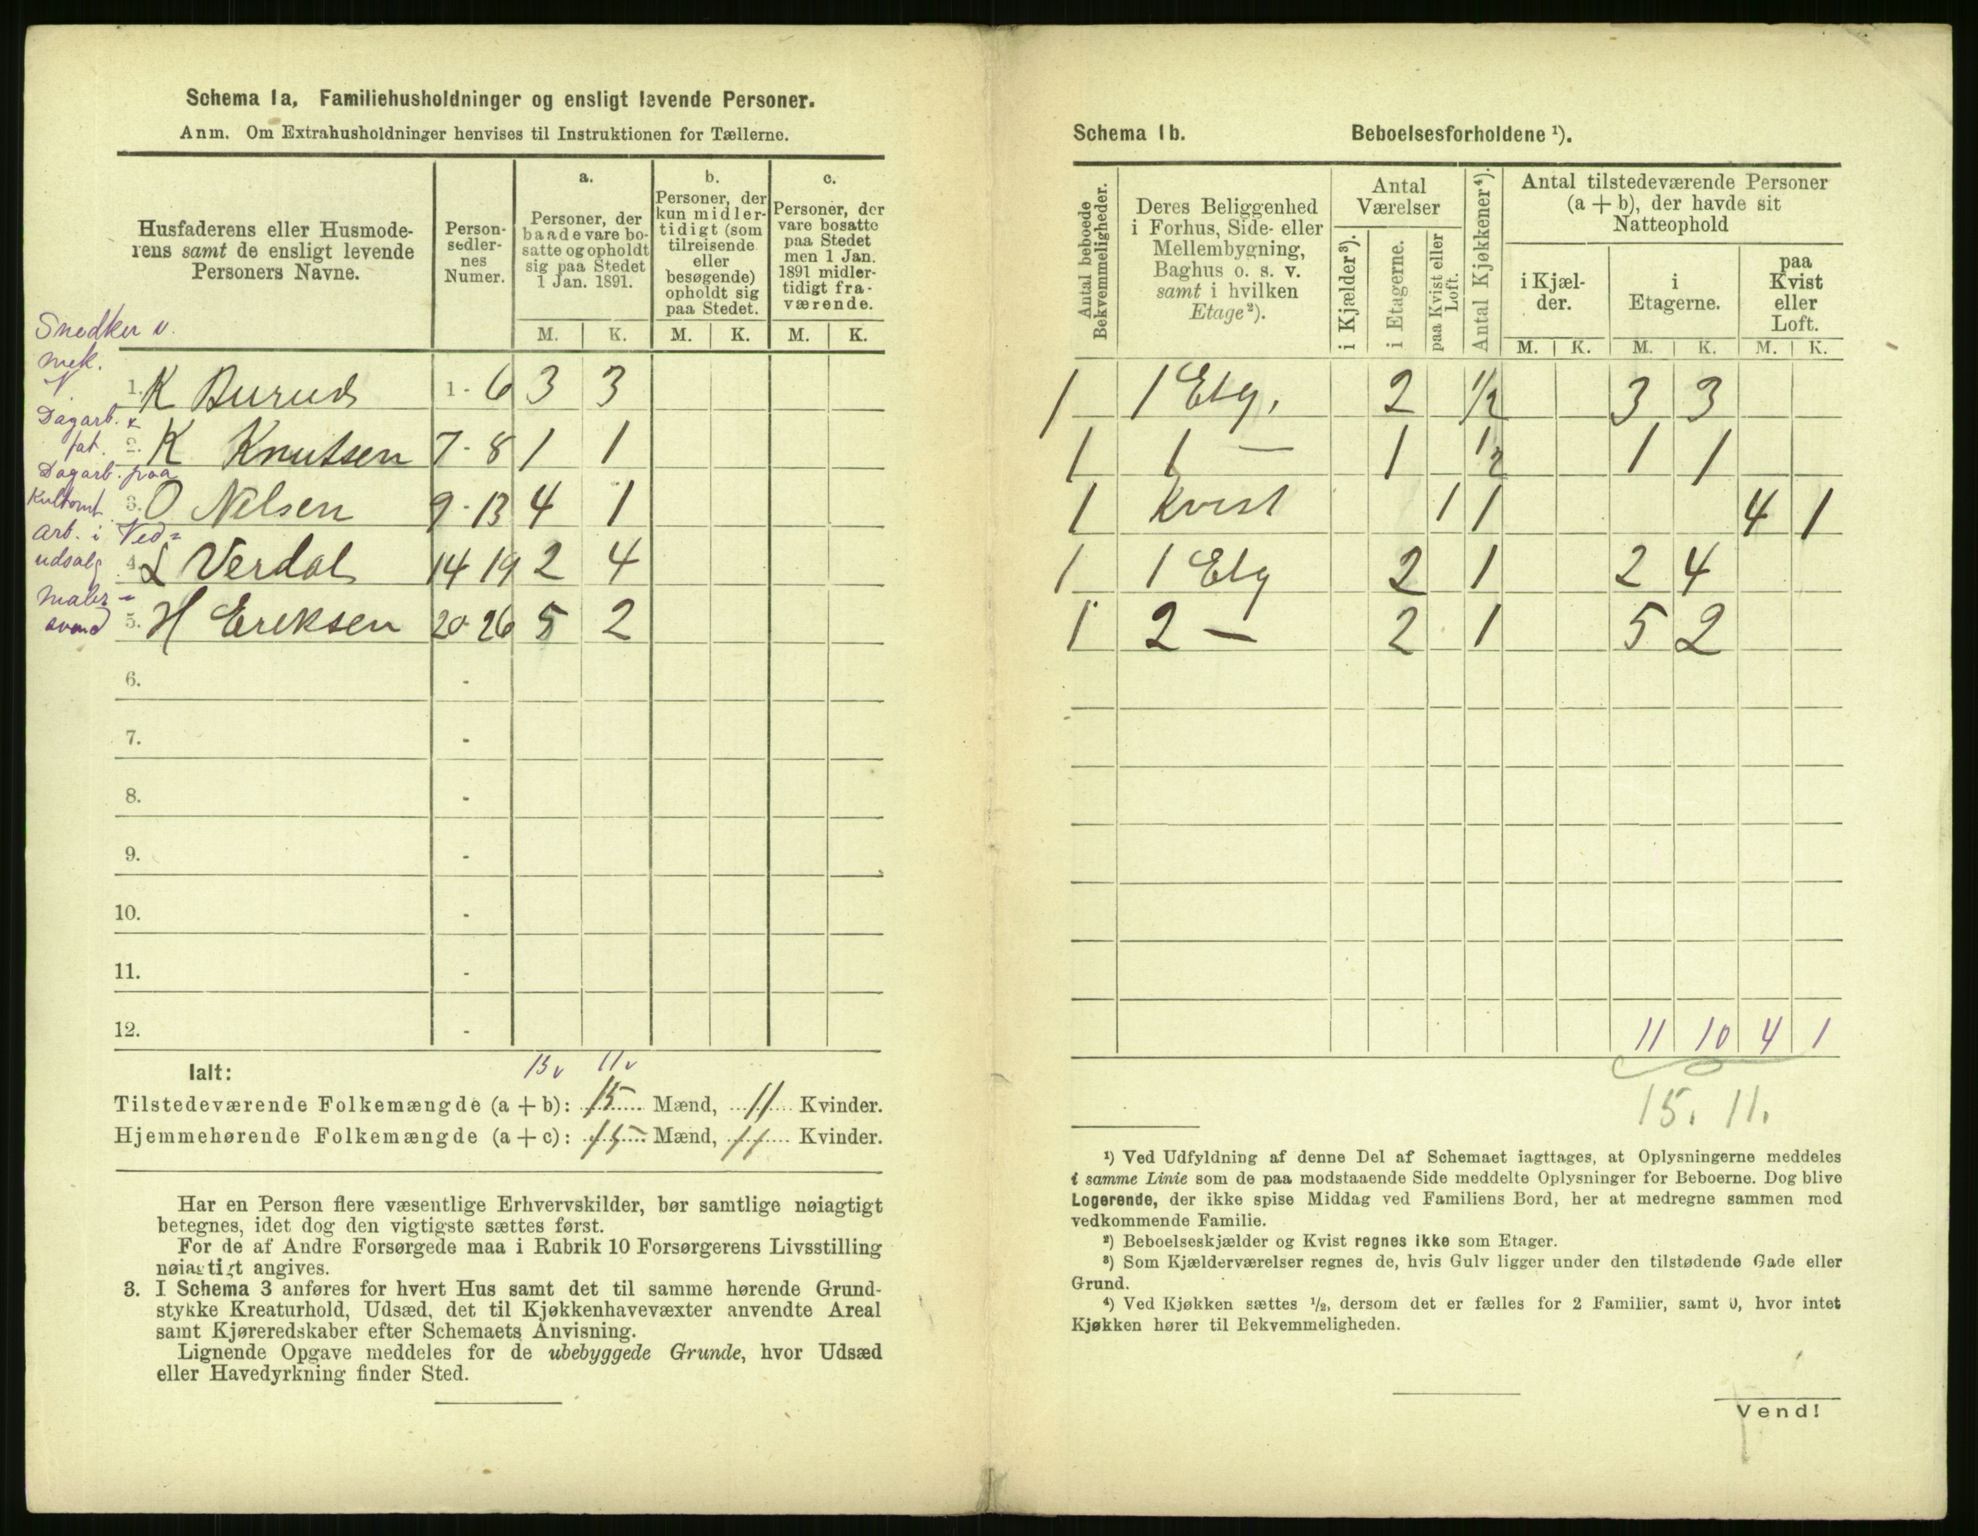 Schema 1a, Familiehusholdninger og ensligt levende Personer.
Anm. Om Extrahusholdninger henvises til Instruktionen for Tællerne.
Husfaderens eller Husmode-
rens samt de ensligt levende
Personers Navne.
Person-
sedler-
nes
Numer.
a.
Personer, der
baade vare bo-
satte og opholdt
sig paa Stedet
1 Jan. 1891.
b.
Personer, der
kun midler-
tidigt (som
tilreisende
eller
besøgende)
opholdt sig
paa Stedet.
c.
Personer, der
vare bosatte
paa Stedet
men 1 Jan.
1891 midler-
tidigt fra-
værende.
M. K. M. K. M. K.
Snedker v.
mek.
1. K Burud 1 - 6 3 3
Dagarb.
fat.
2. K Knutsen 7 - 8 1 1
Dagarb. paa
3. O Nilsen 9 - 13 4 1
Arb. i Ved=
udsalg
4. L Verdal 14 19 2 4
Maler-
svend
5. H Eriksen 20 - 26 5 2
6. -
7. -
8. -
9. -
10. -
11. -
12. -
15 v 11 v
Ialt:
Tilstedeværende Folkemængde (a + b): 15 Mænd, 11 Kvinder.
Hjemmehørende Folkemængde (a + c): 15 Mænd, 11 Kvinder.
Har en Person flere væsentlige Erhvervskilder, bør samtlige nøiagtigt
betegnes, idet dog den vigtigste sættes først.
For de af Andre Forsørgede maa i Rubrik 10 Forsørgerens Livsstilling
nøiagtigt angives.
3. I Schema 3 anføres for hvert Hus samt det til samme hørende Grund-
stykke Kreaturhold, Udsæd, det til Kjøkkenhavevæxter anvendte Areal
samt Kjøreredskaber efter Schemaets Anvisning.
Lignende Opgave meddeles for de ubebyggede Grunde, hvor Udsæd
eller Havedyrkning finder Sted.
Schema 1b. Beboelsesforholdene ¹).
Antal beboede
Bekvemmeligheder.
Deres Beliggenhed
i Forhus, Side- eller
Mellembygning,
Baghus o. s. v.
samt i hvilken
Etage²).
Antal
Værelser
i Kjælder³).
i Etagerne.
paa Kvist eller
Loft.
Antal Kjøkkener⁴).
Antal tilstedeværende Personer
(a + b), der havde sit
Natteophold
i Kjæl-
der.
i
Etagerne.
paa
Kvist
eller
Loft.
M. K. M. K. M. K.
1 1 Etg. 2 1/2 3 3
1 1 — 1 1/2 1 1
1 Kvist 1 1 4 1
1 1 Etg 2 1 2 4
1 2 — 2 1 5 2
11 10 4 1
15. 11.
¹) Ved Udfyldning af denne Del af Schemaet iagttages, at Oplysningerne meddeles
i samme Linie som de paa modstaaende Side meddelte Oplysninger for Beboerne. Dog blive
Logerende, der ikke spise Middag ved Familiens Bord, her at medregne sammen med
vedkommende Familie.
²) Beboelseskjælder og Kvist regnes ikke som Etager.
³) Som Kjælderværelser regnes de, hvis Gulv ligger under den tilstødende Gade eller
Grund.
⁴) Ved Kjøkken sættes ½, dersom det er fælles for 2 Familier, samt 0, hvor intet
Kjøkken hører til Bekvemmeligheden.
Vend!